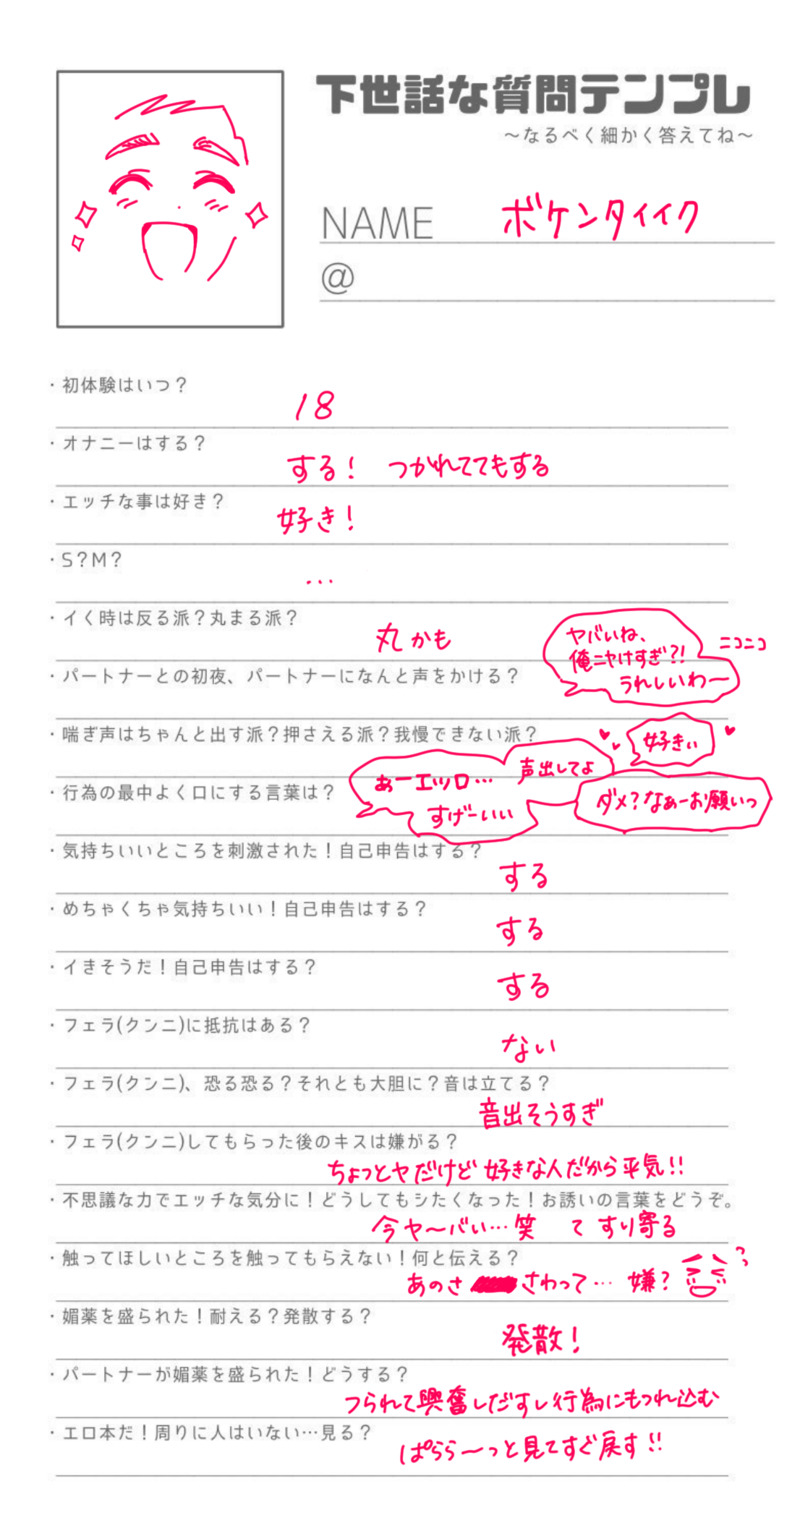 下世話な質問テンプレ
〜なるべく細かく答えてね〜
NAME ボケンタイイク
@
・初体験はいつ？
18
・オナニーはする？
する！ つかれててもする
・エッチな事は好き？
好き！
・S？M？
…
・イく時は反る派？丸まる派？
丸かも
・パートナーとの初夜、パートナーになんと声をかける？
ヤバいね、
俺ニヤけすぎ？！
うれしいわ〜
ニコニコ
・喘ぎ声はちゃんと出す派？押さえる派？我慢できない派？
好きぃ
・行為の最中よく口にする言葉は？
あーエッロ…
声出してよ
すげーいい
ダメ？なぁーお願いっ
・気持ちいいところを刺激された！自己申告はする？
する
・めちゃくちゃ気持ちいい！自己申告はする？
する
・イきそうだ！自己申告はする？
する
・フェラ(クンニ)に抵抗はある？
ない
・フェラ(クンニ)、恐る恐る？それとも大胆に？音は立てる？
音出そうすぎ
・フェラ(クンニ)してもらった後のキスは嫌がる？
ちょっとヤだけど好きな人だから平気！！
・不思議な力でエッチな気分に！どうしてもシたくなった！お誘いの言葉をどうぞ。
今ヤ〜バい…笑 て すり寄る
・触ってほしいところを触ってもらえない！何と伝える？
あのさ さわって… 嫌？
・媚薬を盛られた！耐える？発散する？
発散！
・パートナーが媚薬を盛られた！どうする？
つられて興奮しだすし行為にもつれ込む
・エロ本だ！周りに人はいない…見る？
ぱらら〜っと見てすぐ戻す！！